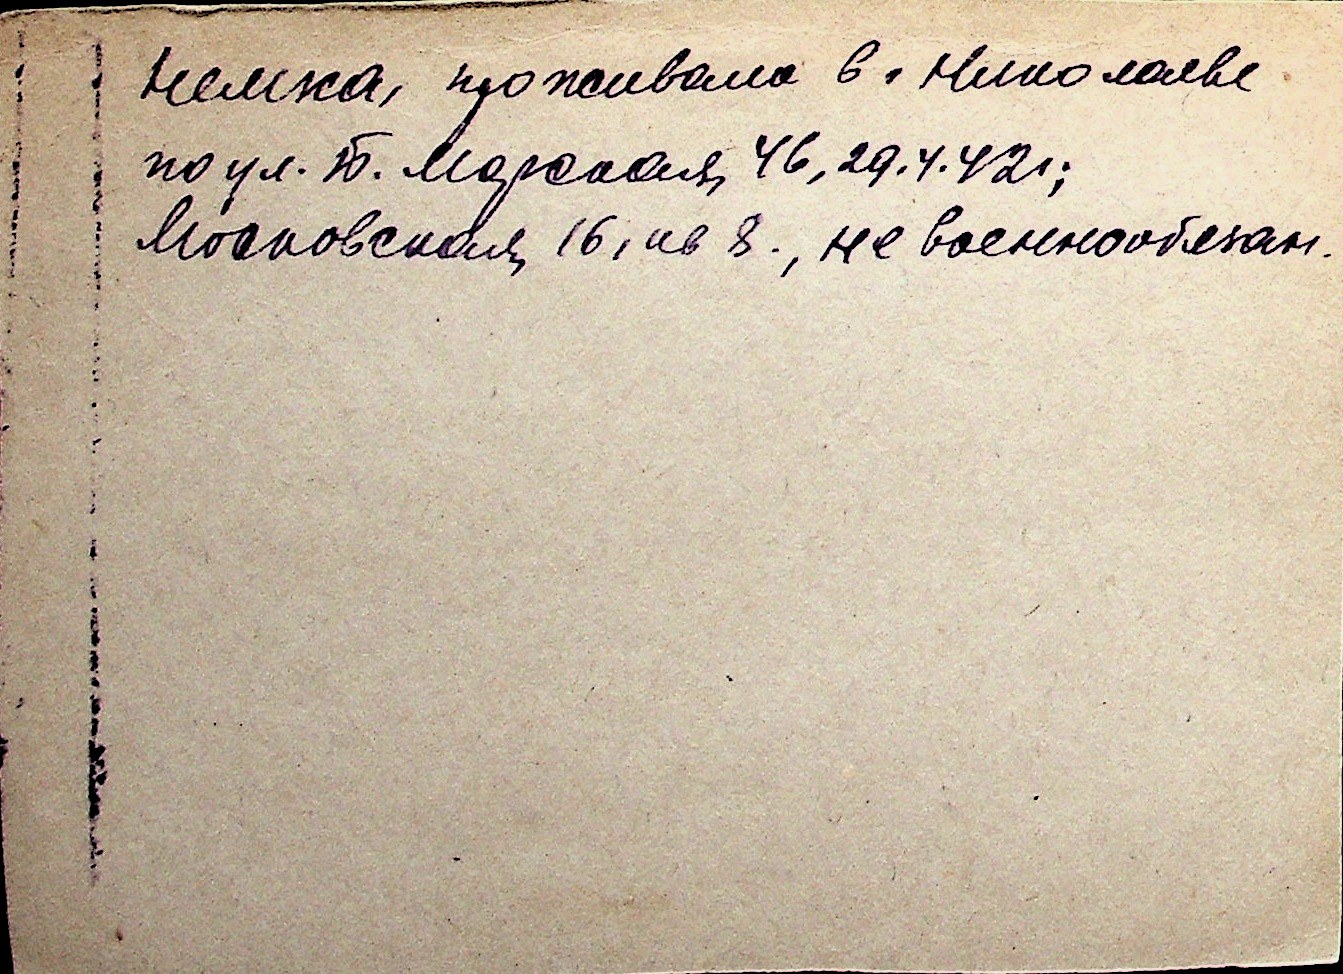 немка, проживала в г. Николаеве
по ул. Б. Морская, 46, 29.4.42г;
Московская, 16, кв 8., не военнообязан.